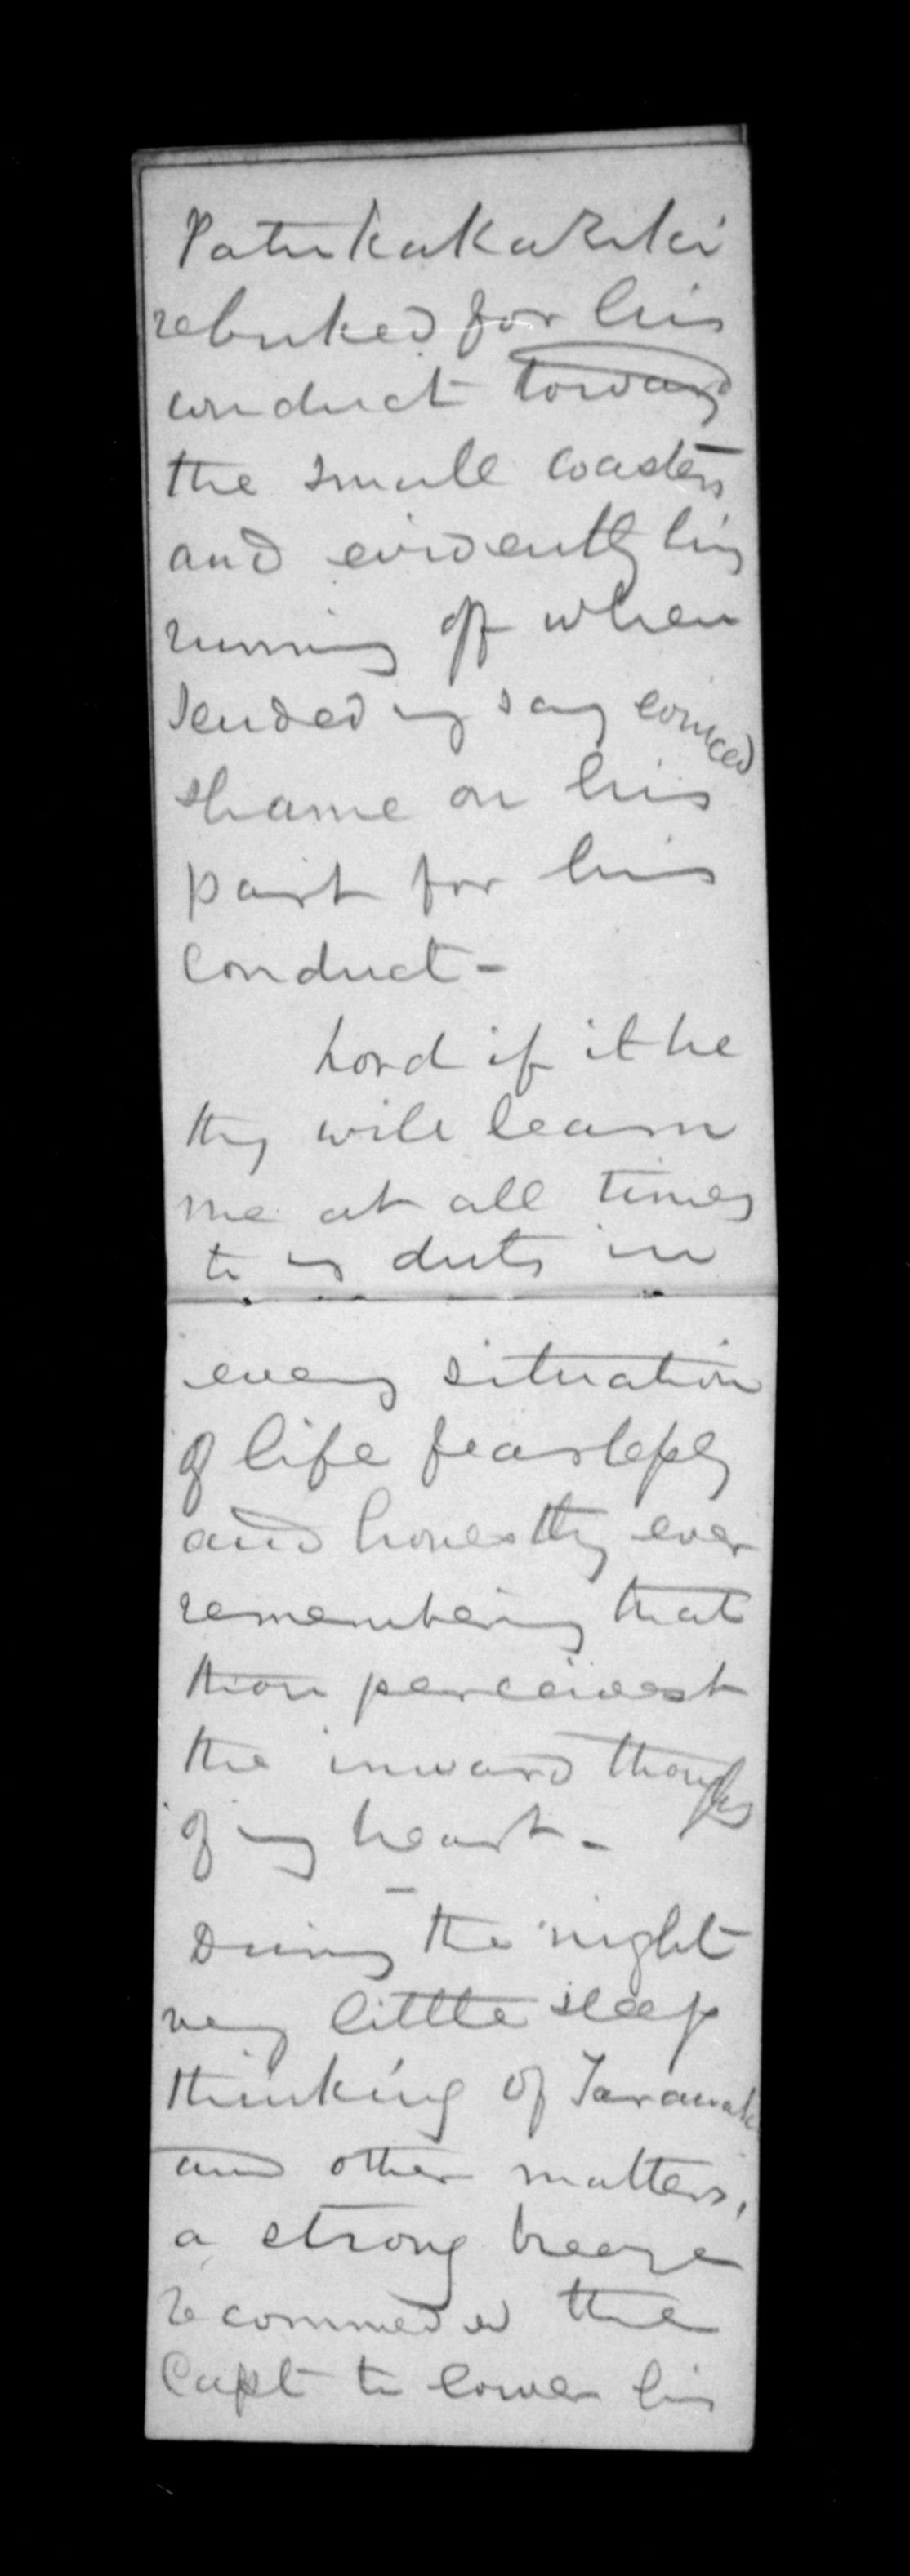 Patukakariki
rebuked for his
conduct toward
the small coasters
and evidently his
running off when
landed my say evinced
shame on his
part for his
conduct -
Lord if it be
thy will learn
me at all times
to my duty in
every situation
of life fearlessly
and honestly ever
remembering that
thou perceivest
the inward thoughts
of my heart -
During the night
very little sleep
thinking of Taranaki
and other matters,
a strong breeze
recommeded the
Capt to lower his